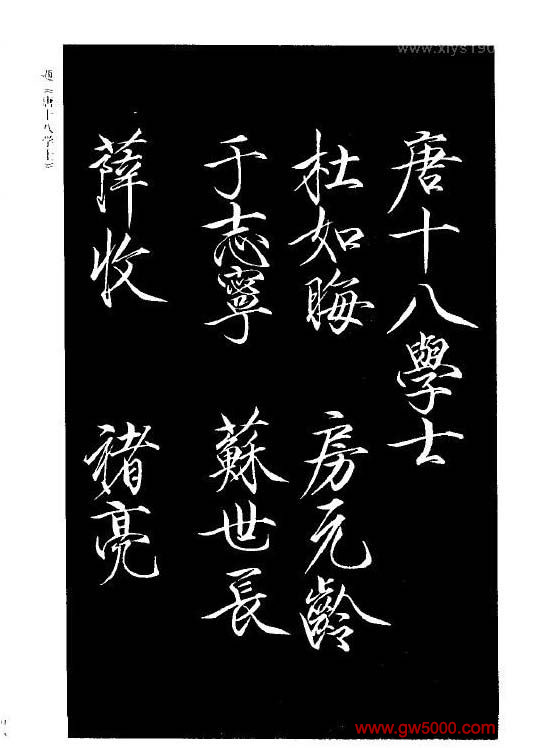 唐十八學士
杜如晦 房元齡
于志寧 蘇世長
薛收 褚亮
題《唐十八学士》
www.xlys190
www.gw5000.com